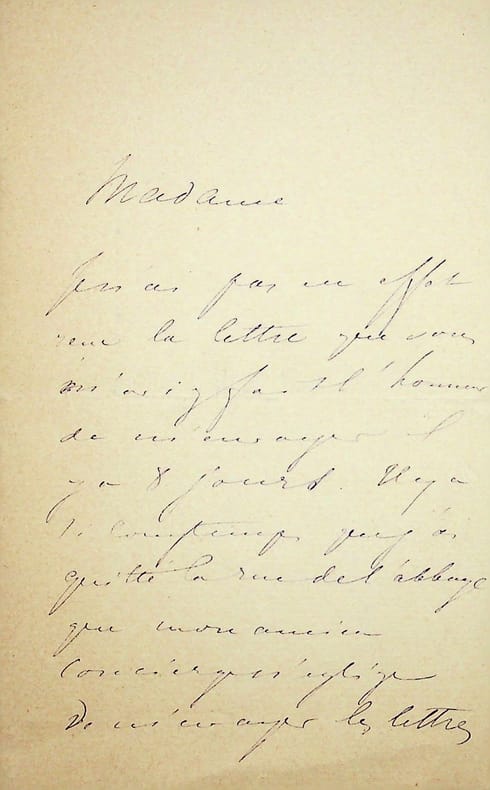 Madame
Je n'ai pas en effet
reçu la lettre que vous
m'aviez fait l'honneur
de m'envoyer il
y a 8 jours. Il y a
si longtemps que j'ai
quitté la rue de l'abbaye
que mon ancien
concierge néglige
de m'envoyer les lettres